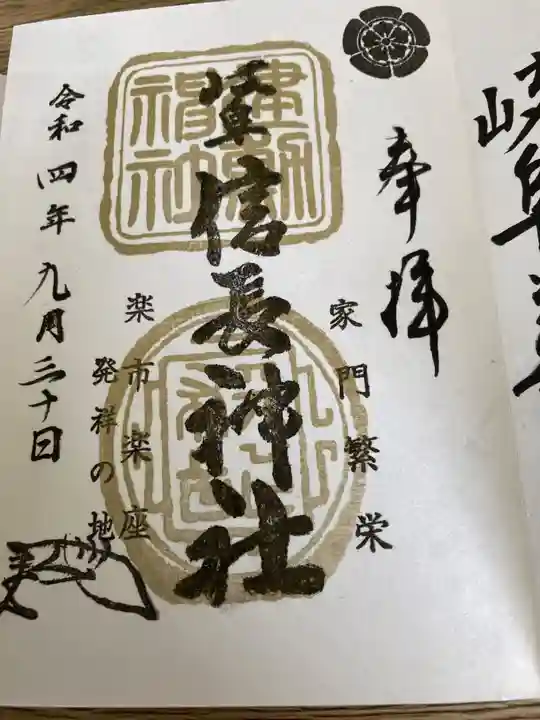 岐阜
奉拝
家門繁栄
建勲神社
信長神社
楽市楽座
発祥の地
令和四年九月三十日